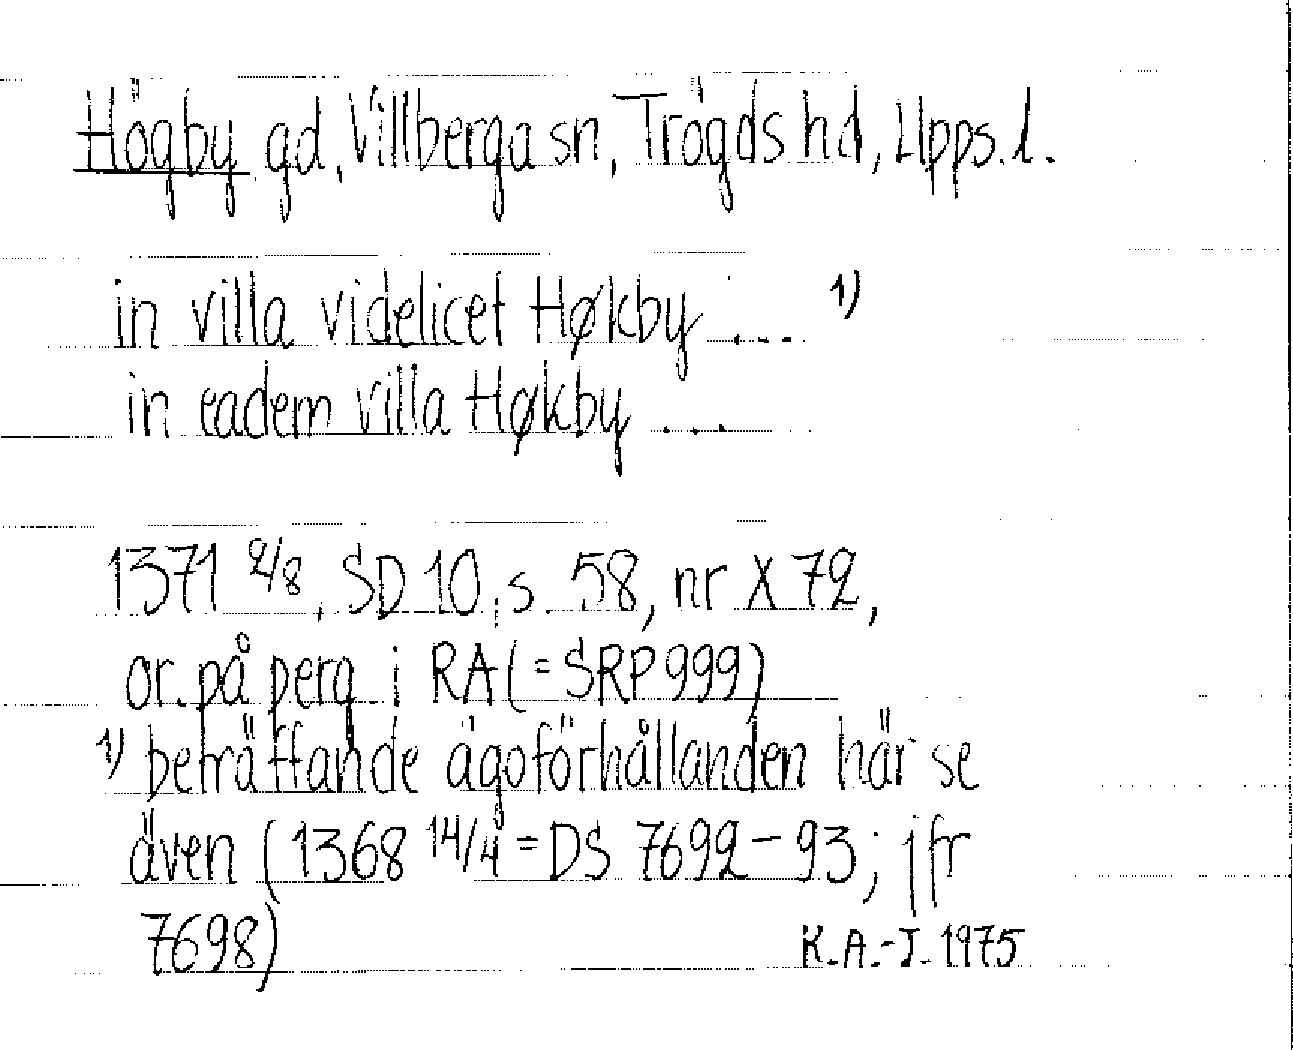 Högby gd, Villberga sn, Trögds hd, Upps. l.
in villa videlicet Høkby .... 1)
in eadem villa Høkby ...
1371 2/8, SD 10, s. 58, nr X 72,
or. på perg i RA (= SRP 999)
1) beträffande ägoförhållanden här se
även (1368 14/4 = DS 7692-93; jfr
7698)
K.A.-J. 1975